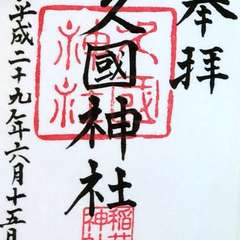 奉拝
久國神社
久國
神社
稲荷
神社
平成二十九年六月十五日